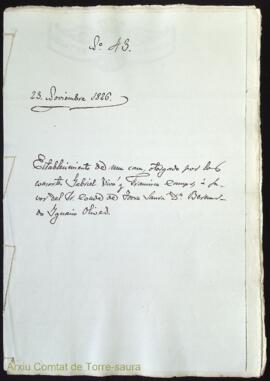 Nº 43.
23. Noviembre 1826.
Establecimiento de una casa, otorgado por los
consortes Gabriel Vivó y Francisca Camps, á fa-
vor del Sr. Conde de Torre Saura Dn. Bernar-
do Ygnacio Olives.
Arxiu Comtat de Torre-saura